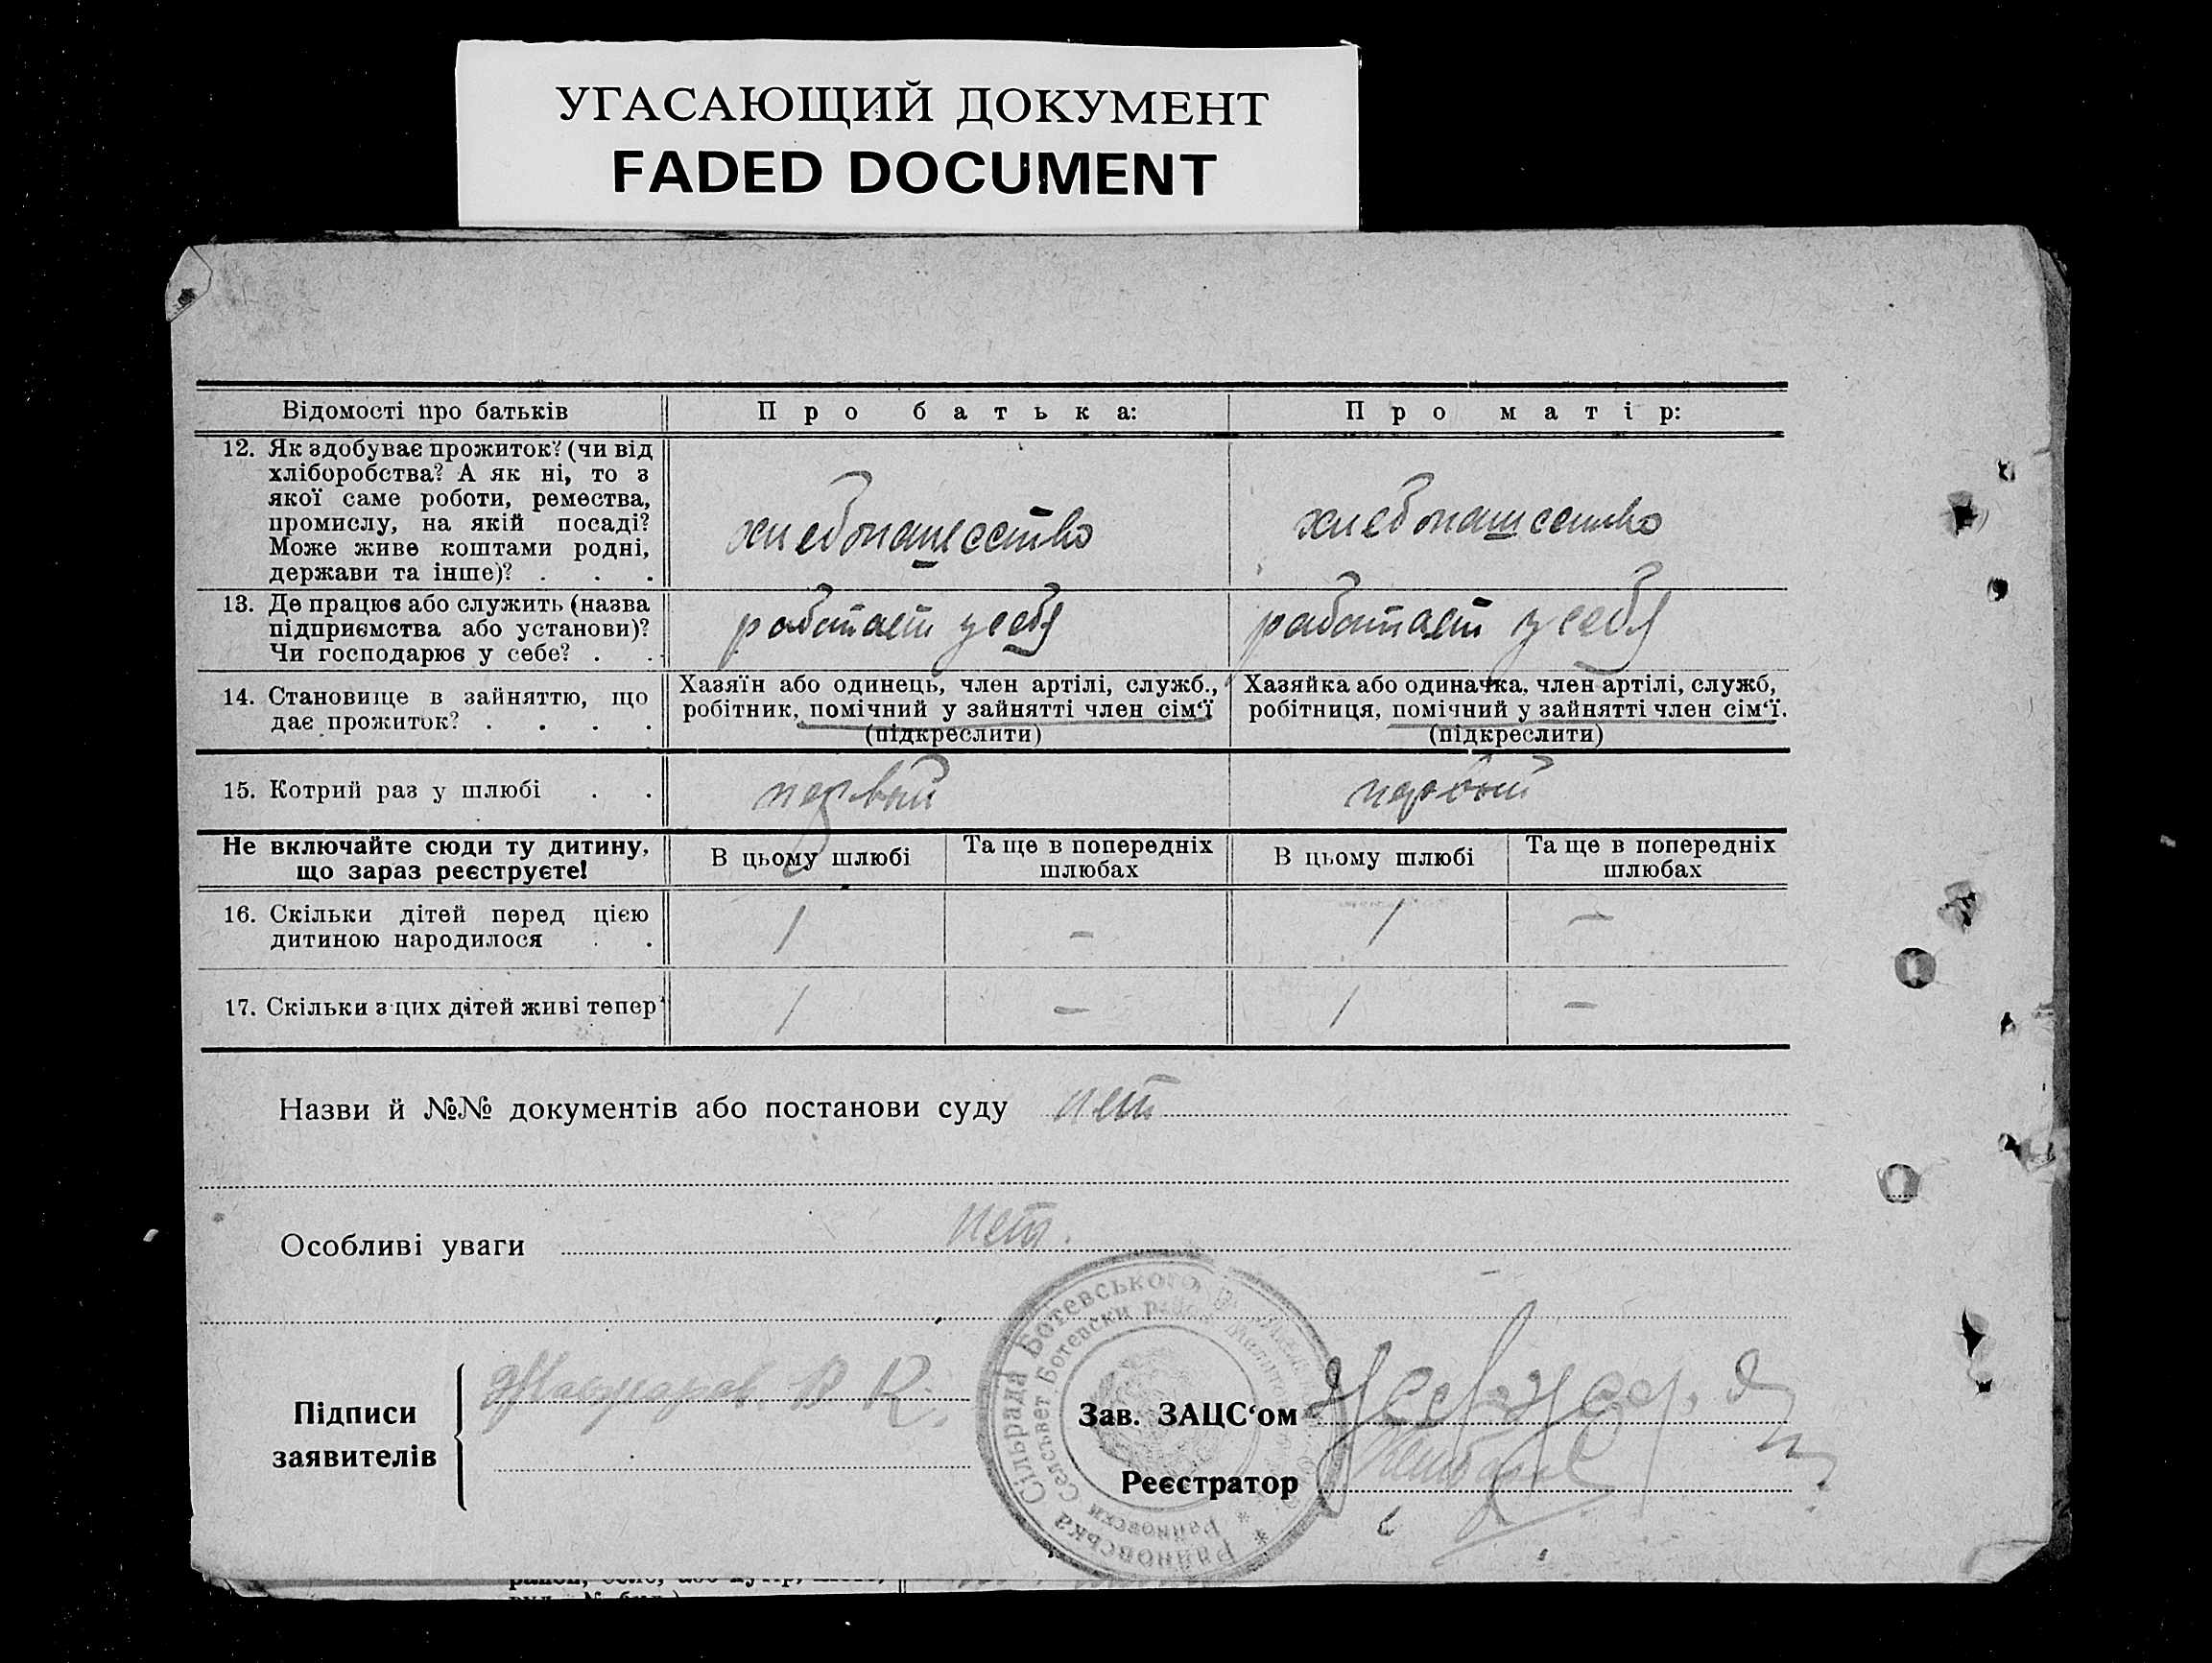 УГАСАЮЩИЙ ДОКУМЕНТ
FADED DOCUMENT
Відомості про батьків
Про батька:
Про матір:
12. Як здобуває прожиток? (чи від
хліборобства? А як ні, то з
якої саме роботи, ремества,
промислу, на якій посаді?
Може живе коштами родні,
держави та інше)? . . .
хлебопашество
хлебопашество
13. Де працює або служить (назва
підприємства або установи)?
Чи господарює у себе? . .
работает у себя
работает у себя
14. Становище в зайняттю, що
дає прожиток? . . . .
Хазяїн або одинець, член артілі, служб.,
робітник, помічний у зайнятті член сім‘ї
(підкреслити)
Хазяйка або одиначка, член артілі, служб,
робітниця, помічний у зайнятті член сім‘ї.
(підкреслити)
15. Котрий раз у шлюбі . .
первый
первый
Не включайте сюди ту дитину,
що зараз реєструєте!
В цьому шлюбі
Та ще в попередніх
шлюбах
В цьому шлюбі
Та ще в попередніх
шлюбах
16. Скільки дітей перед цією
дитиною народилося . .
1
–
1
–
17. Скільки з цих дітей живі тепер
1
–
1
–
Назви й №№ документів або постанови суду нет
Особливі уваги нет.
Підписи
заявителів
В К.
Зав. ЗАЦС‘ом
Реєстратор
Райновська Сільрада Ботевського
Райновски Сельсвет Ботевски район